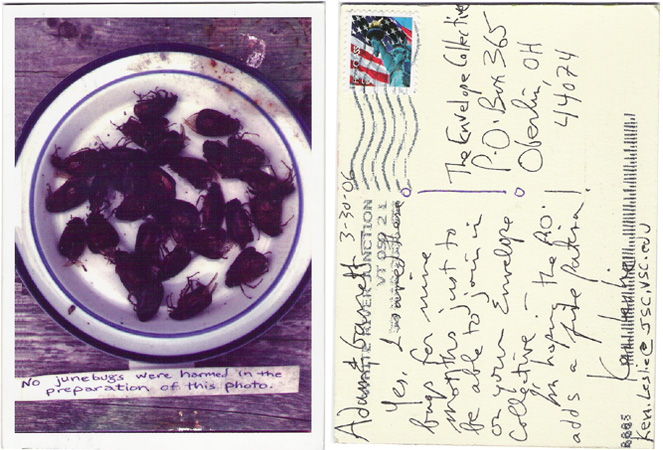 No junebugs were harmed in the
preparation of this photo.
Adam & Garrett 3-30-06
Yes, I saved these
bugs for nine
months just to
be able to join in
on your Envelope
Collective —
I'm hoping the P.O.
adds a fine patina!
The Envelope Collective
P.O. Box 365
Oberlin, OH
44074
WHITE RIVER JUNCTION
VT 050
ken.leslie@jsc.vsc.edu